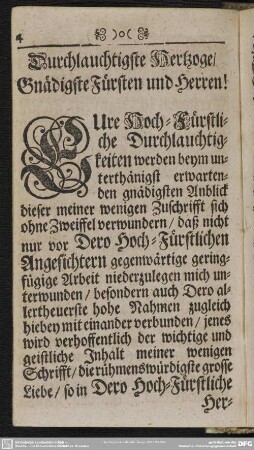 4 )o(
Durchlauchtigste Hertzoge/
Gnädigste Fürsten und Herren!
EUre Hoch-Fürstli-
che Durchlauchtig-
keiten werden beym un-
terthänigst erwarten-
den gnädigsten Anblick
dieser meiner wenigen Zuschrifft sich
ohne Zweiffel verwundern / daß nicht
nur vor Dero Hoch-Fürstlichen
Angesichtern gegenwärtige gering-
fügige Arbeit niederzulegen mich un-
terwunden / besondern auch Dero al-
lertheuerste hohe Nahmen zugleich
hiebey mit einander verbunden / jenes
wird verhoffentlich der wichtige und
geistliche Inhalt meiner wenigen
Schrifft / die rühmenswürdigste grosse
Liebe / so in Dero Hoch-Fürstliche
Her-
DFG